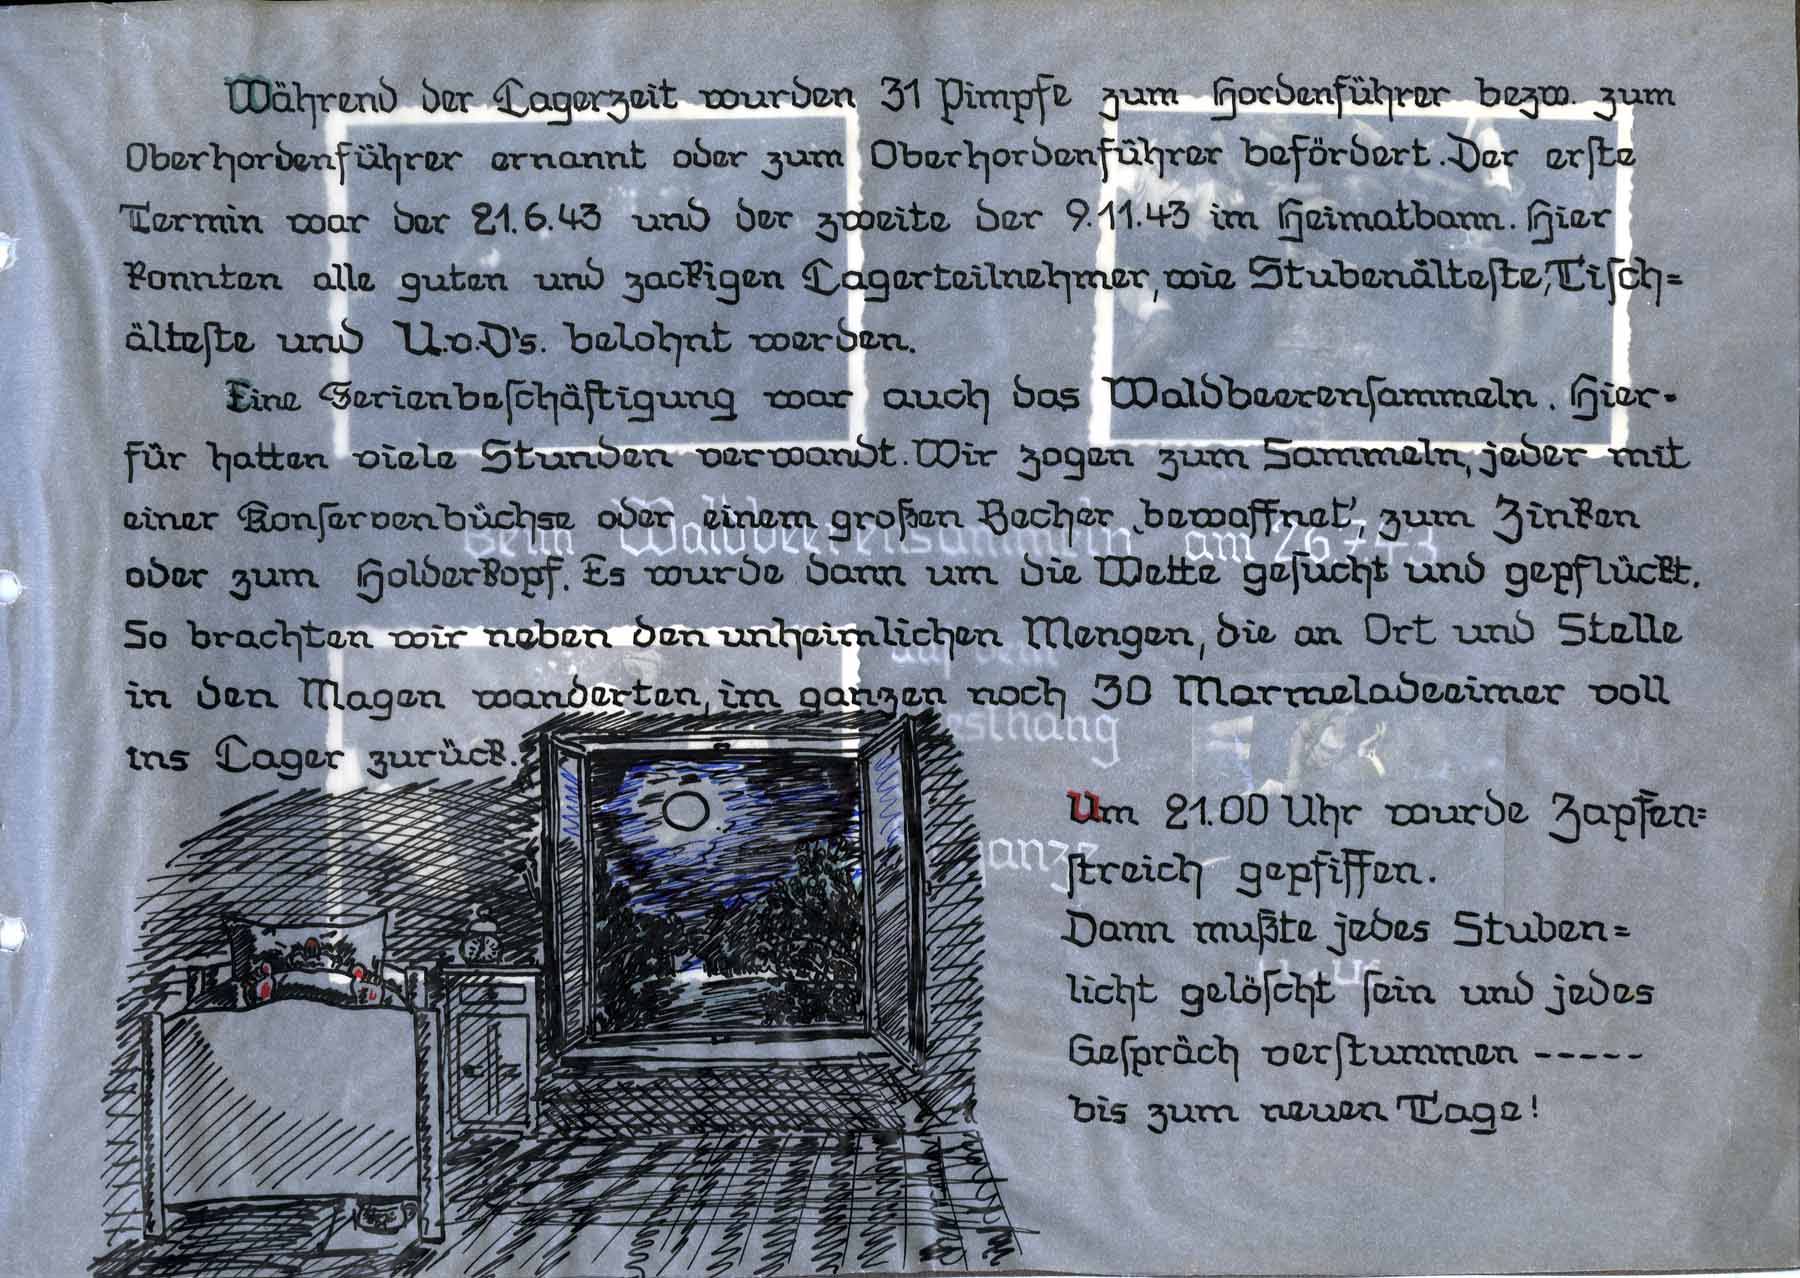 Während der Lagerzeit wurden 31 Pimpfe zum Hordenführer bezw. zum
Oberhordenführer ernannt oder zum Oberhordenführer befördert. Der erste
Termin war der 21.6.43 und der zweite der 9.11.43 im Heimatbann. Hier
konnten alle guten und zackigen Lagerteilnehmer, wie Stubenälteste, Tisch=
älteste und U.v.D's. belohnt werden.
Eine Ferienbeschäftigung war auch das Waldbeerensammeln. Hier-
für hatten viele Stunden verwandt. Wir zogen zum Sammeln, jeder mit
einer Konservenbüchse oder einem großen Becher ,bewaffnet', zum Zinken
oder zum Holderkopf. Es wurde dann um die Wette gesucht und gepflückt.
So brachten wir neben den unheimlichen Mengen, die an Ort und Stelle
in den Magen wanderten, im ganzen noch 30 Marmeladeeimer voll
ins Lager zurück.
Um 21.00 Uhr wurde Zapfen=
streich gepfiffen.
Dann mußte jedes Stuben=
licht gelöscht sein und jedes
Gespräch verstummen -----
bis zum neuen Tage!
Beim Waldbeerensammeln am 26.7.43
auf dem
esthang
ganze